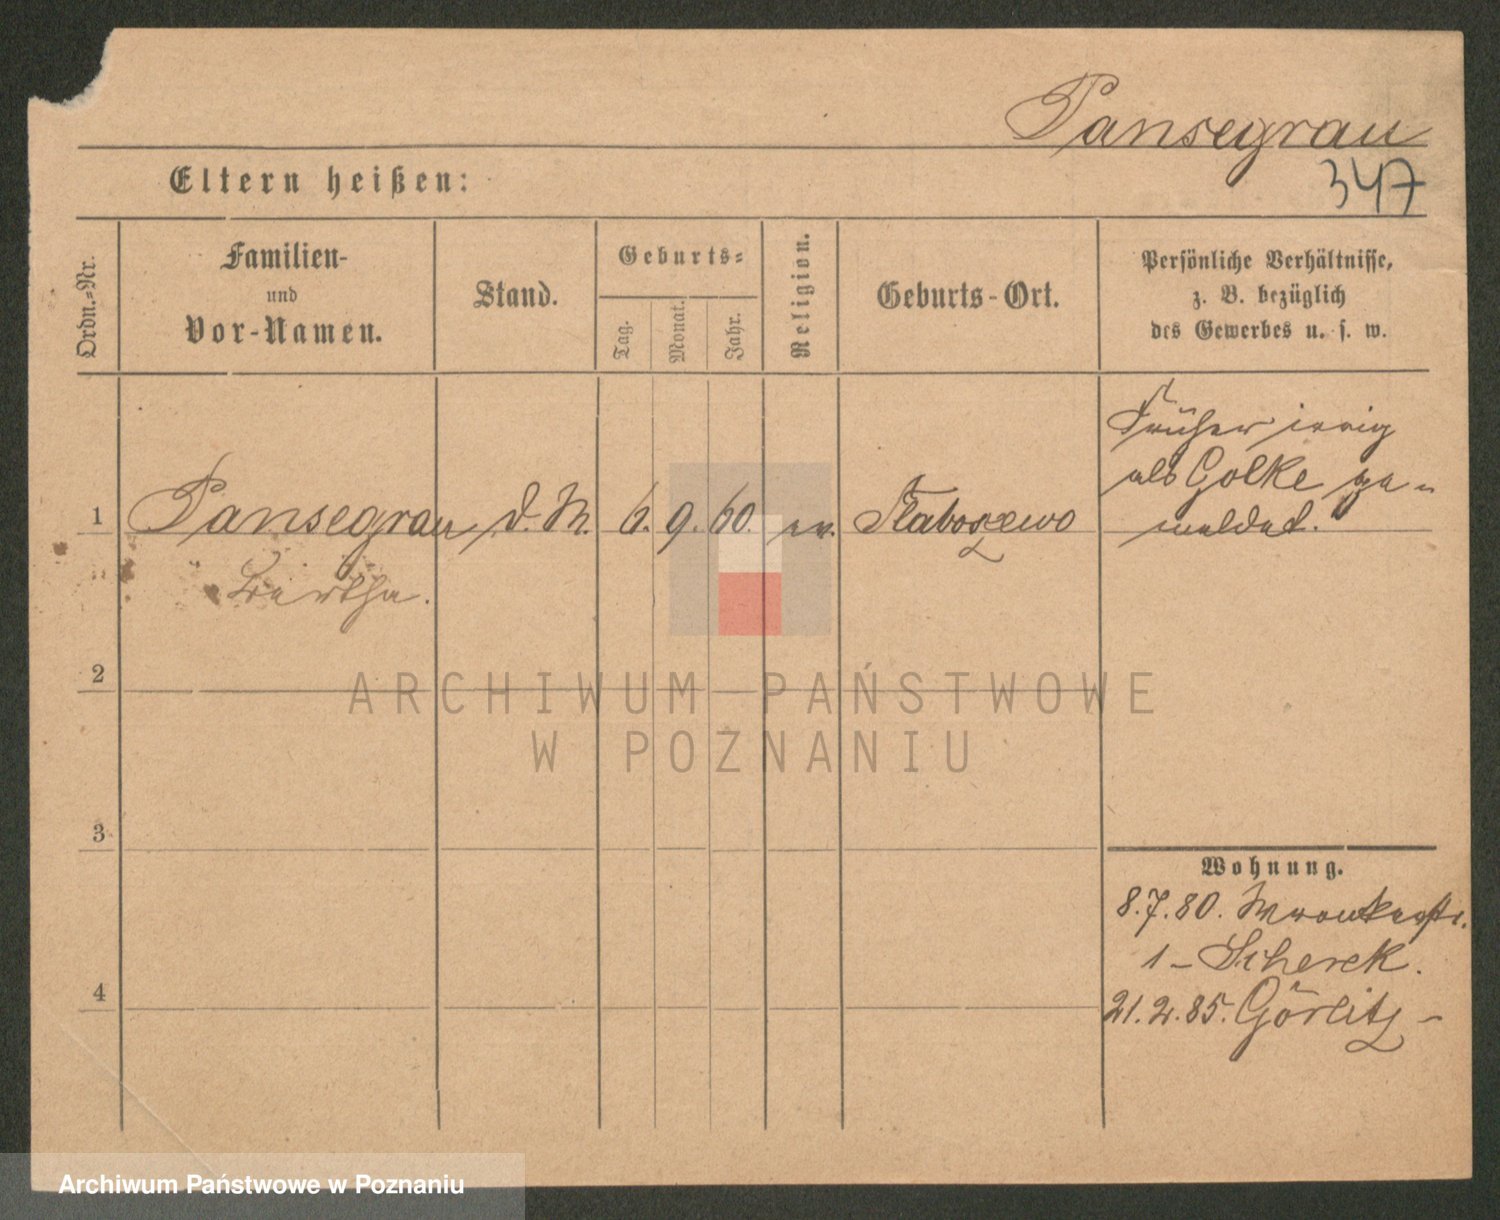 Pansegrau
347
Eltern heißen:
Ordn.-Nr.
Familien-
und
Vor-Namen.
Stand.
Geburts-
Tag.
Monat.
Jahr.
Religion.
Geburts-Ort.
Persönliche Verhältnisse,
z. B. bezüglich
des Gewerbes u. s. w.
Früher irrig
als Golke ge-
meldet.
1 Pansegrau d. M. 6. 9. 60. ev.
Bertha.
2
3
4
Wohnung.
8.7.80. Wronkerstr.
1 - Scherek.
21.2.85. Görlitz -
ARCHIWUM PAŃSTWOWE
W POZNANIU
Archiwum Państwowe w Poznaniu